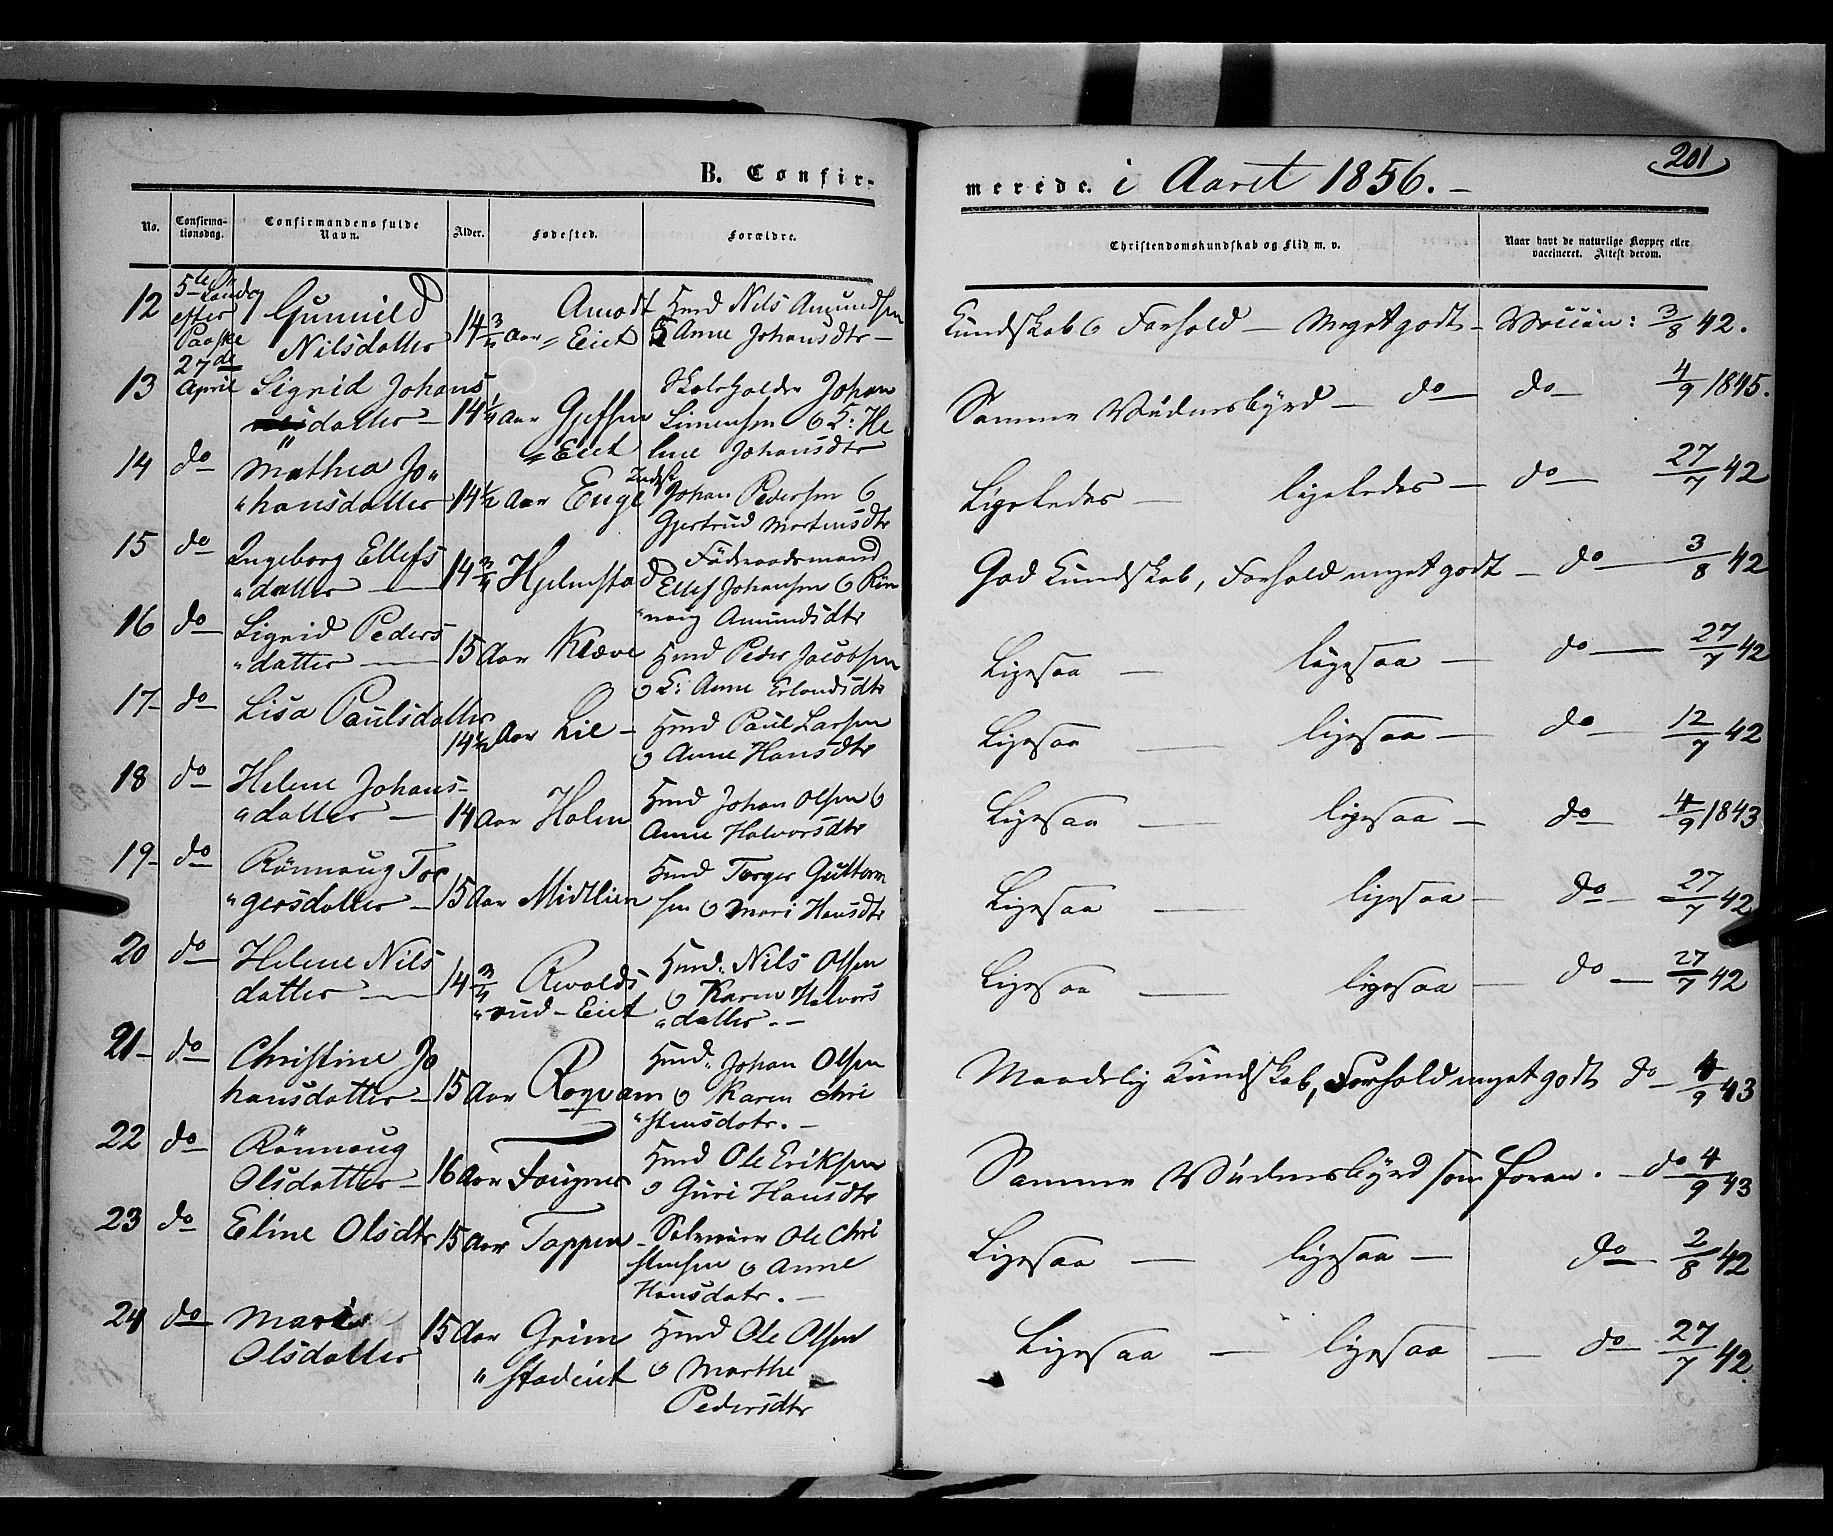 B. Confir-
merede. i Aaret 1856. -
201
No.
Confirma-
tionsdag.
Confirmandens fulde
Navn.
Alder.
Fødested.
Forældre.
Christendomskundskab og Flid m. v.
Naar havt de naturlige Kopper eller
vaccineret. Attest derom.
12
5te Søndag
efter
Paaske
27de
April
Gunnild
Nilsdatter
14 3/4 Aar
Amodt
= Eiet
Huusmd Nils Amundsen
& Anne Johansdtr -
Kundskab & Forhold - Meget godt -
Vaccin: 3/8 42.
13
Sigrid Johans
datter -
14 1/4 Aar
Gjeffsen
= Eiet
Skoleholder Johan
Simensen & K: He
lene Johansdtr
Samme Vidnesbyrd - do -
do -
4/9 1845.
14
do
Mathea Jo„
„hansdatter
14 1/2 Aar
Enge
Inderst
Johan Pedersen &
Gjertrud Mortensdtr
Ligeledes - ligeledes -
do -
27/7 42
15
do
Ingeborg Ellefs
„datter -
14 3/4
Hjelmstad
Föderaadsmand
Ellef Johansen & Rön
„naug Amundsdtr
God Kundskab, Forhold meget godt -
do -
3/8 42
16
do
Sigrid Peders
„datter -
15 Aar
Kløve
Huusmd Peder Jacobsen
& K: Anne Erlandsdtr
Ligesaa - ligesaa -
do -
27/7 42
17 -
do
Lisa Paulsdatter
14 1/2 Aar
Lie -
Huusmd Paul Larsen
& Anne Hansdtr
Ligesaa - ligesaa -
do -
12/7 42
18
do
Helene Johans-
„datter -
14 Aar
Holen
Huusmd Johan Olsen &
Anne Halvorsdtr
Ligesaa - ligesaa -
do
4/9 1843
19 -
do
Rönnaug Tor
„gersdatter -
15 Aar
Midtlien
Huusmd Torger Guttorm
sen & Mari Hansdtr
Ligesaa - ligesaa -
do -
27/7 42
20
do
Helene Nils
datter -
14 3/4
Revolds
„rud - Eiet
Huusmd: Nils Olsen
& Karen Halvors
„datter. -
Ligesaa - ligesaa -
do -
27/7 42
21 -
do
Christine Jo
hansdatter -
15 Aar
Roqvam
Huusmd: Johan Olsen
& Karen Chri
„stensdatr. -
Maadelig Kundskab, Forhold meget godt
do -
4/9 43
22
do
Rönnaug
Olsdatter -
16 Aar
Fougner
Huusmd Ole Eriksen
& Guri Hansdtr
Samme Vidnesbyrd som foran. -
do
4/9 43
23
do
Eline Olsdtr
15 Aar
Toppen
Selveier Ole Chri
stensen & Anne
Hansdatr. -
Ligesaa - ligesaa -
do -
2/8 42
24
do
Mari
Olsdatter
15 Aar
Grim
„stadeiet
Huusmd Ole Olsen
& Marthe
Pedersdtr
Ligesaa - ligesaa -
do -
27/7 42.